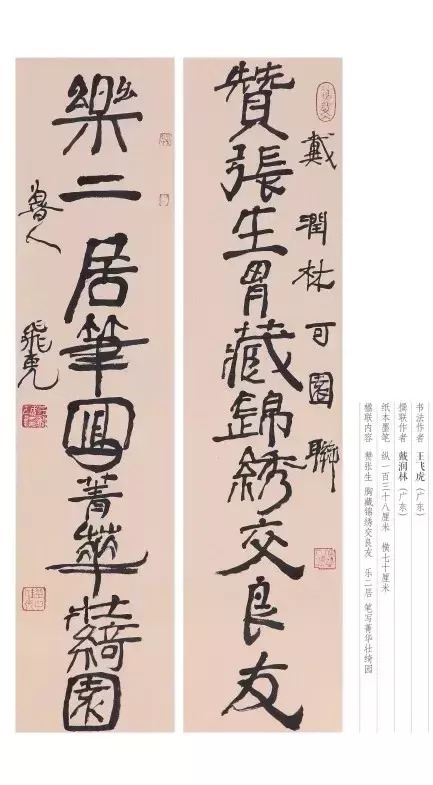 书法作者 王飞虎（广东）
撰联作者 戴润林（广东）
纸本墨笔 纵一百三十八厘米 横七十厘米
楹联内容 赞张生 胸藏锦绣交良友 乐二居 笔写菁华壮绮园
戴潤林可園聯
贊張生胷藏錦綉交良友
樂二居筆菁華壯綺園
魯人飛虎